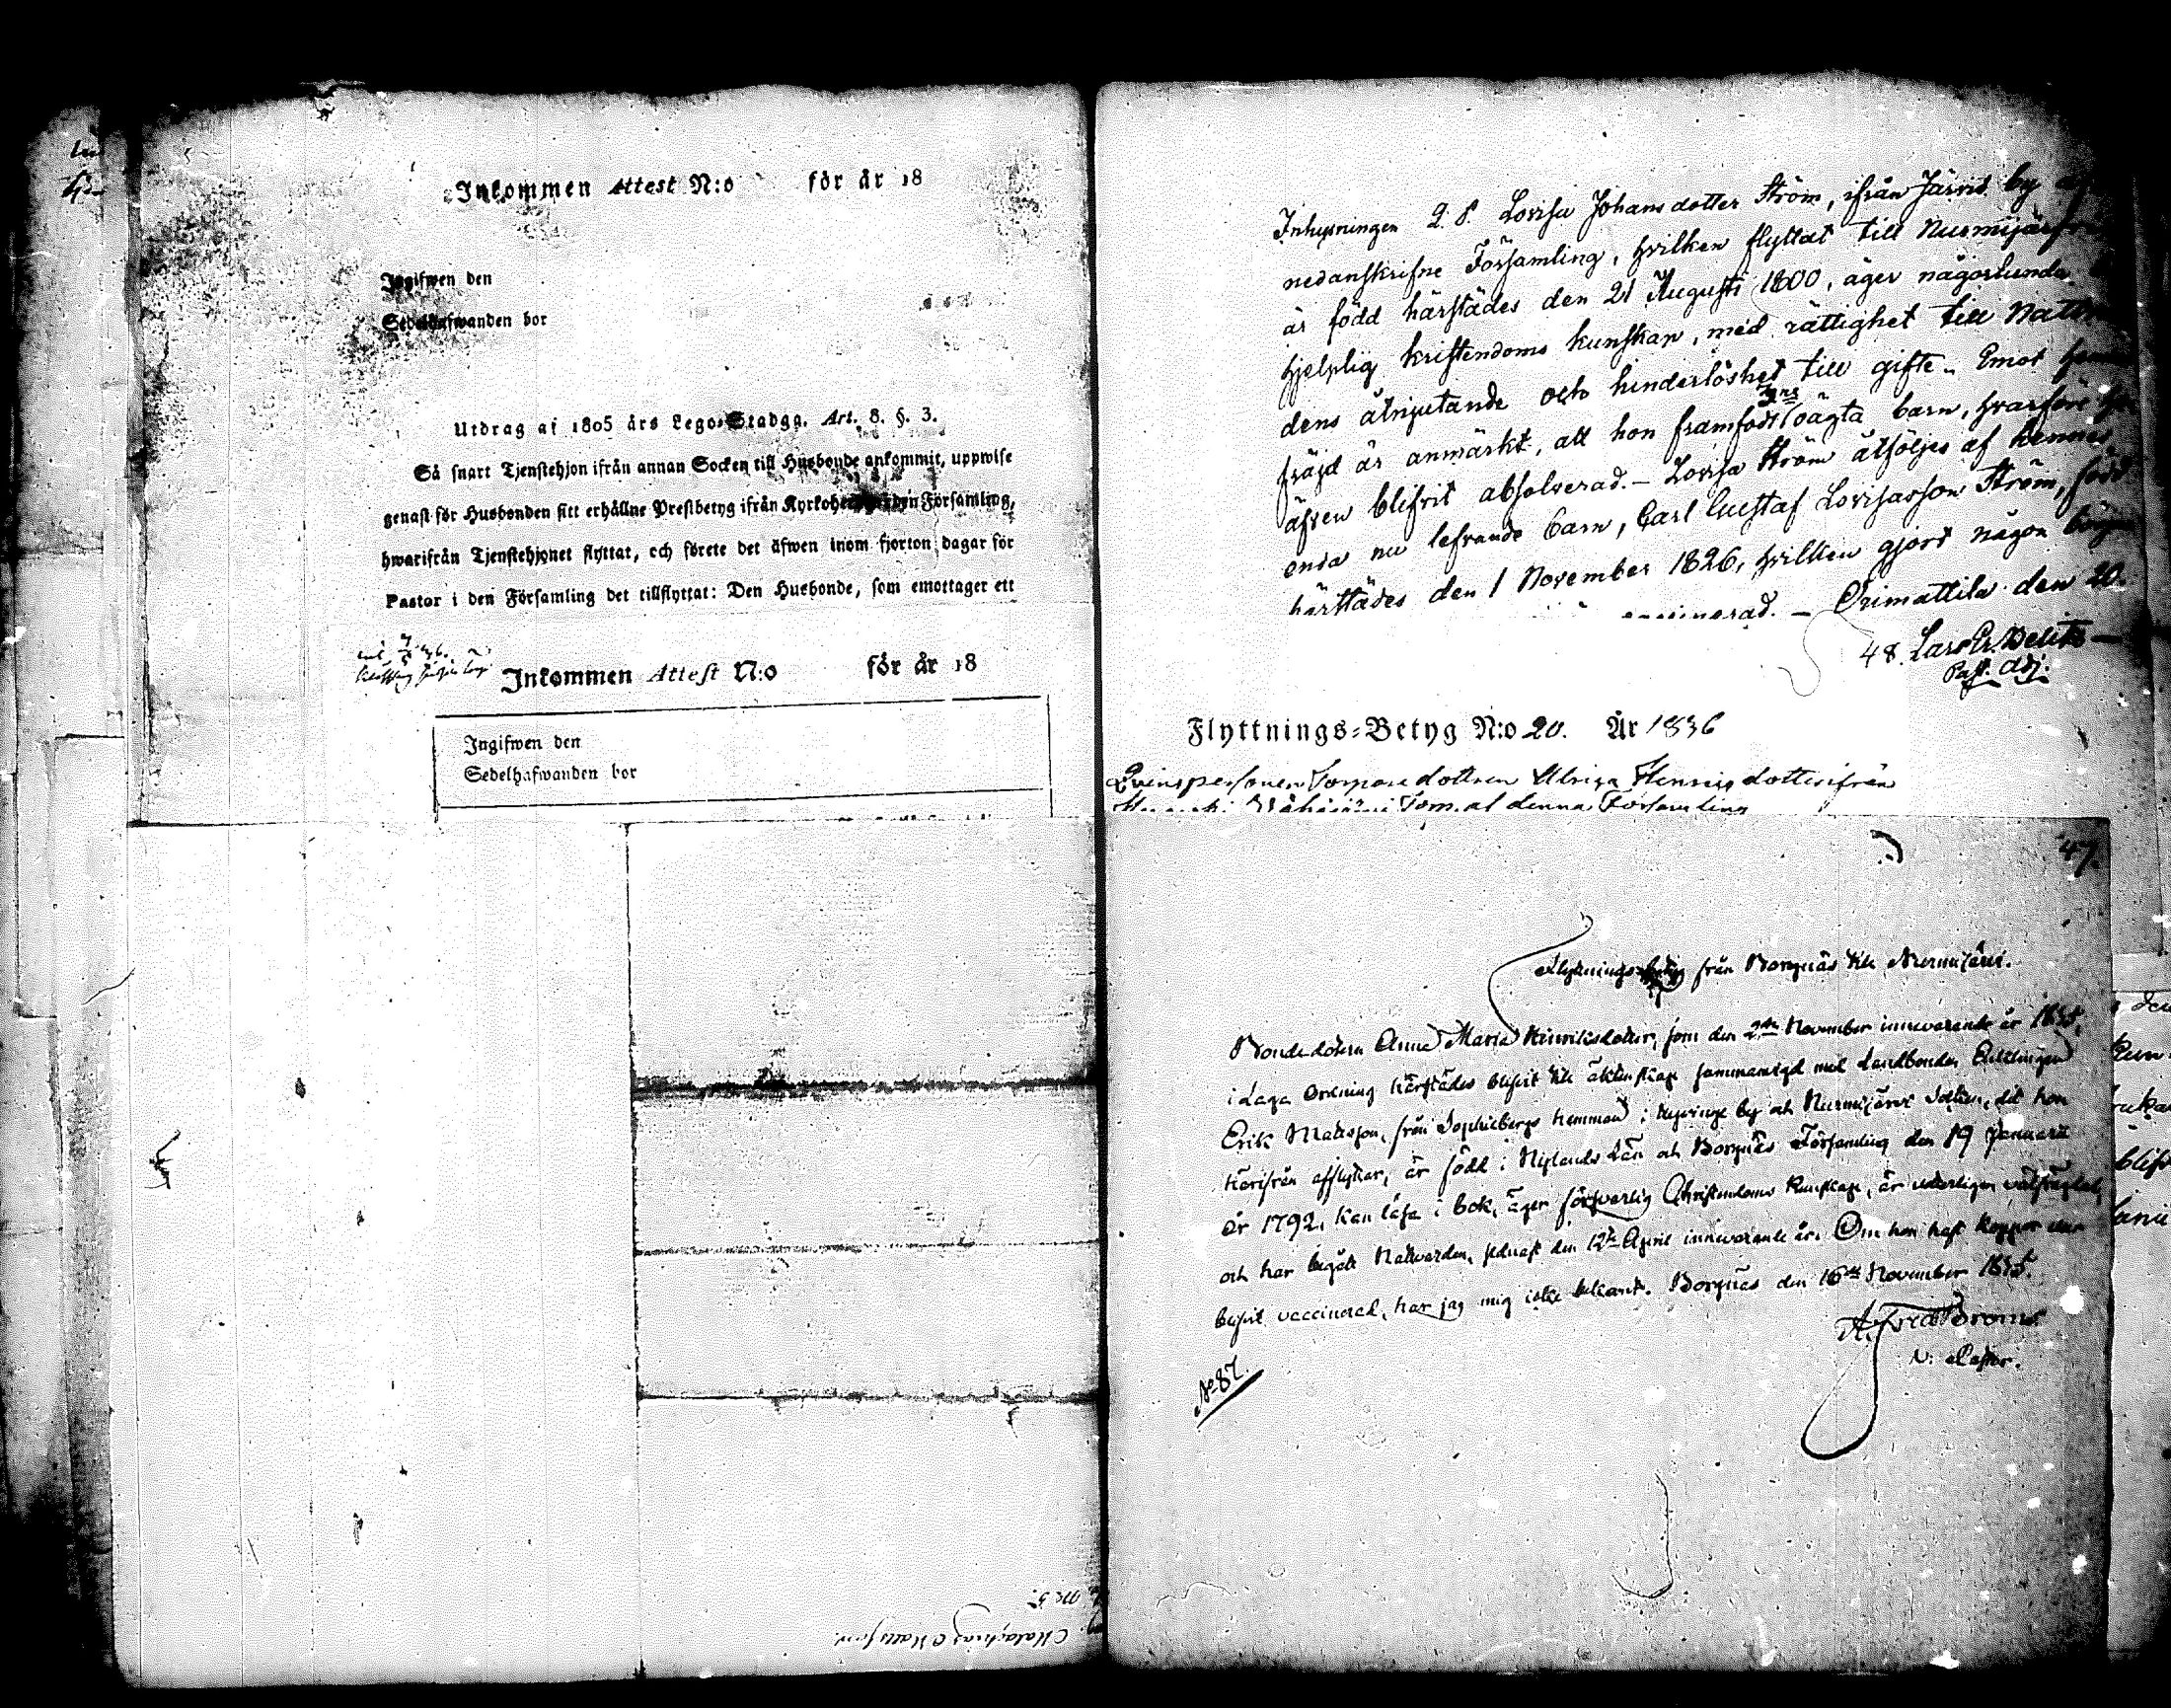 Inkommen Attest N:o för år 18
Ingifwen den
Sedelhafwanden bor
Utdrag af 1805 års Lego-Stadga. Art. 8. §. 3.
Så snart Tjenstehjon ifrån annan Socken till Husbonde ankommit, uppwise
genast för Husbonden sitt erhållne Prestbetyg ifrån Församling,
hwarifrån Tjenstehjonet flyttat, och förete det äfwen inom fjorton dagar för
Pastor i den Församling det tillflyttat: Den Husbonde, som emottager ett
Inkommen Attest N:o för år 18
Ingifwen den
Sedelhafwanden bor
Mattsson
Inhysningen Q. P. Lovisa Johansdotter Ström, ifrån Järvis by
nedanskrifne Församling, hvilken flyttat till Nurmijärfvi
är född härstädes den 21 Augusti 1800, äger någorlunda
hjelplig kristendoms kunskap, med rättighet till Natt
dens åtnjutande och hinderlöshet till gifte. Emot
fräjd är anmärkt, att hon framfödt 3ne oägta barn, hvarföre
äfven blifvit absolverad. - Lovisa Ström åtföljes af hennes
enda nu lefvande barn, Carl Gustaf Lovisasson Ström, född
härstädes den 1 November 1826, hvilken gjort någon
Orimattila den 20.
48. Lars Er. Delitz
Past. Adj.
Flyttnings-Betyg N:o 20. År 1836
Qvinspersonen Torparedottren Ulrica Henricsdotter ifrån
af denna Församling
47.
Flyttningsbetyg från Borgnäs till Nurmijärvi.
Bondedottern Anna Maria Henriksdotter, som den 2dra November innevarande år 1835,
i Laga Ordning härstädes blifvit till äktenskap sammanvigd med Landbonden Enklingen
Erik Mattsson, från Sophiebergs hemman i by och Nurmijärvi Socken, dit hon
härifrån afflyttar, är född i Nylands Län och Borgnäs Församling den 19 Januarii
år 1792, kan läsa i bok, äger försvarlig Christendoms Kunskap, är
och har begått Nattvarden, sednast den 12te April innevarande år. Om hon haft koppor eller
blifvit vaccinerad, har jag mig icke bekant. Borgnäs den 16de November 1835.
A. Fred. Broms
V: Pastor.
No 87.